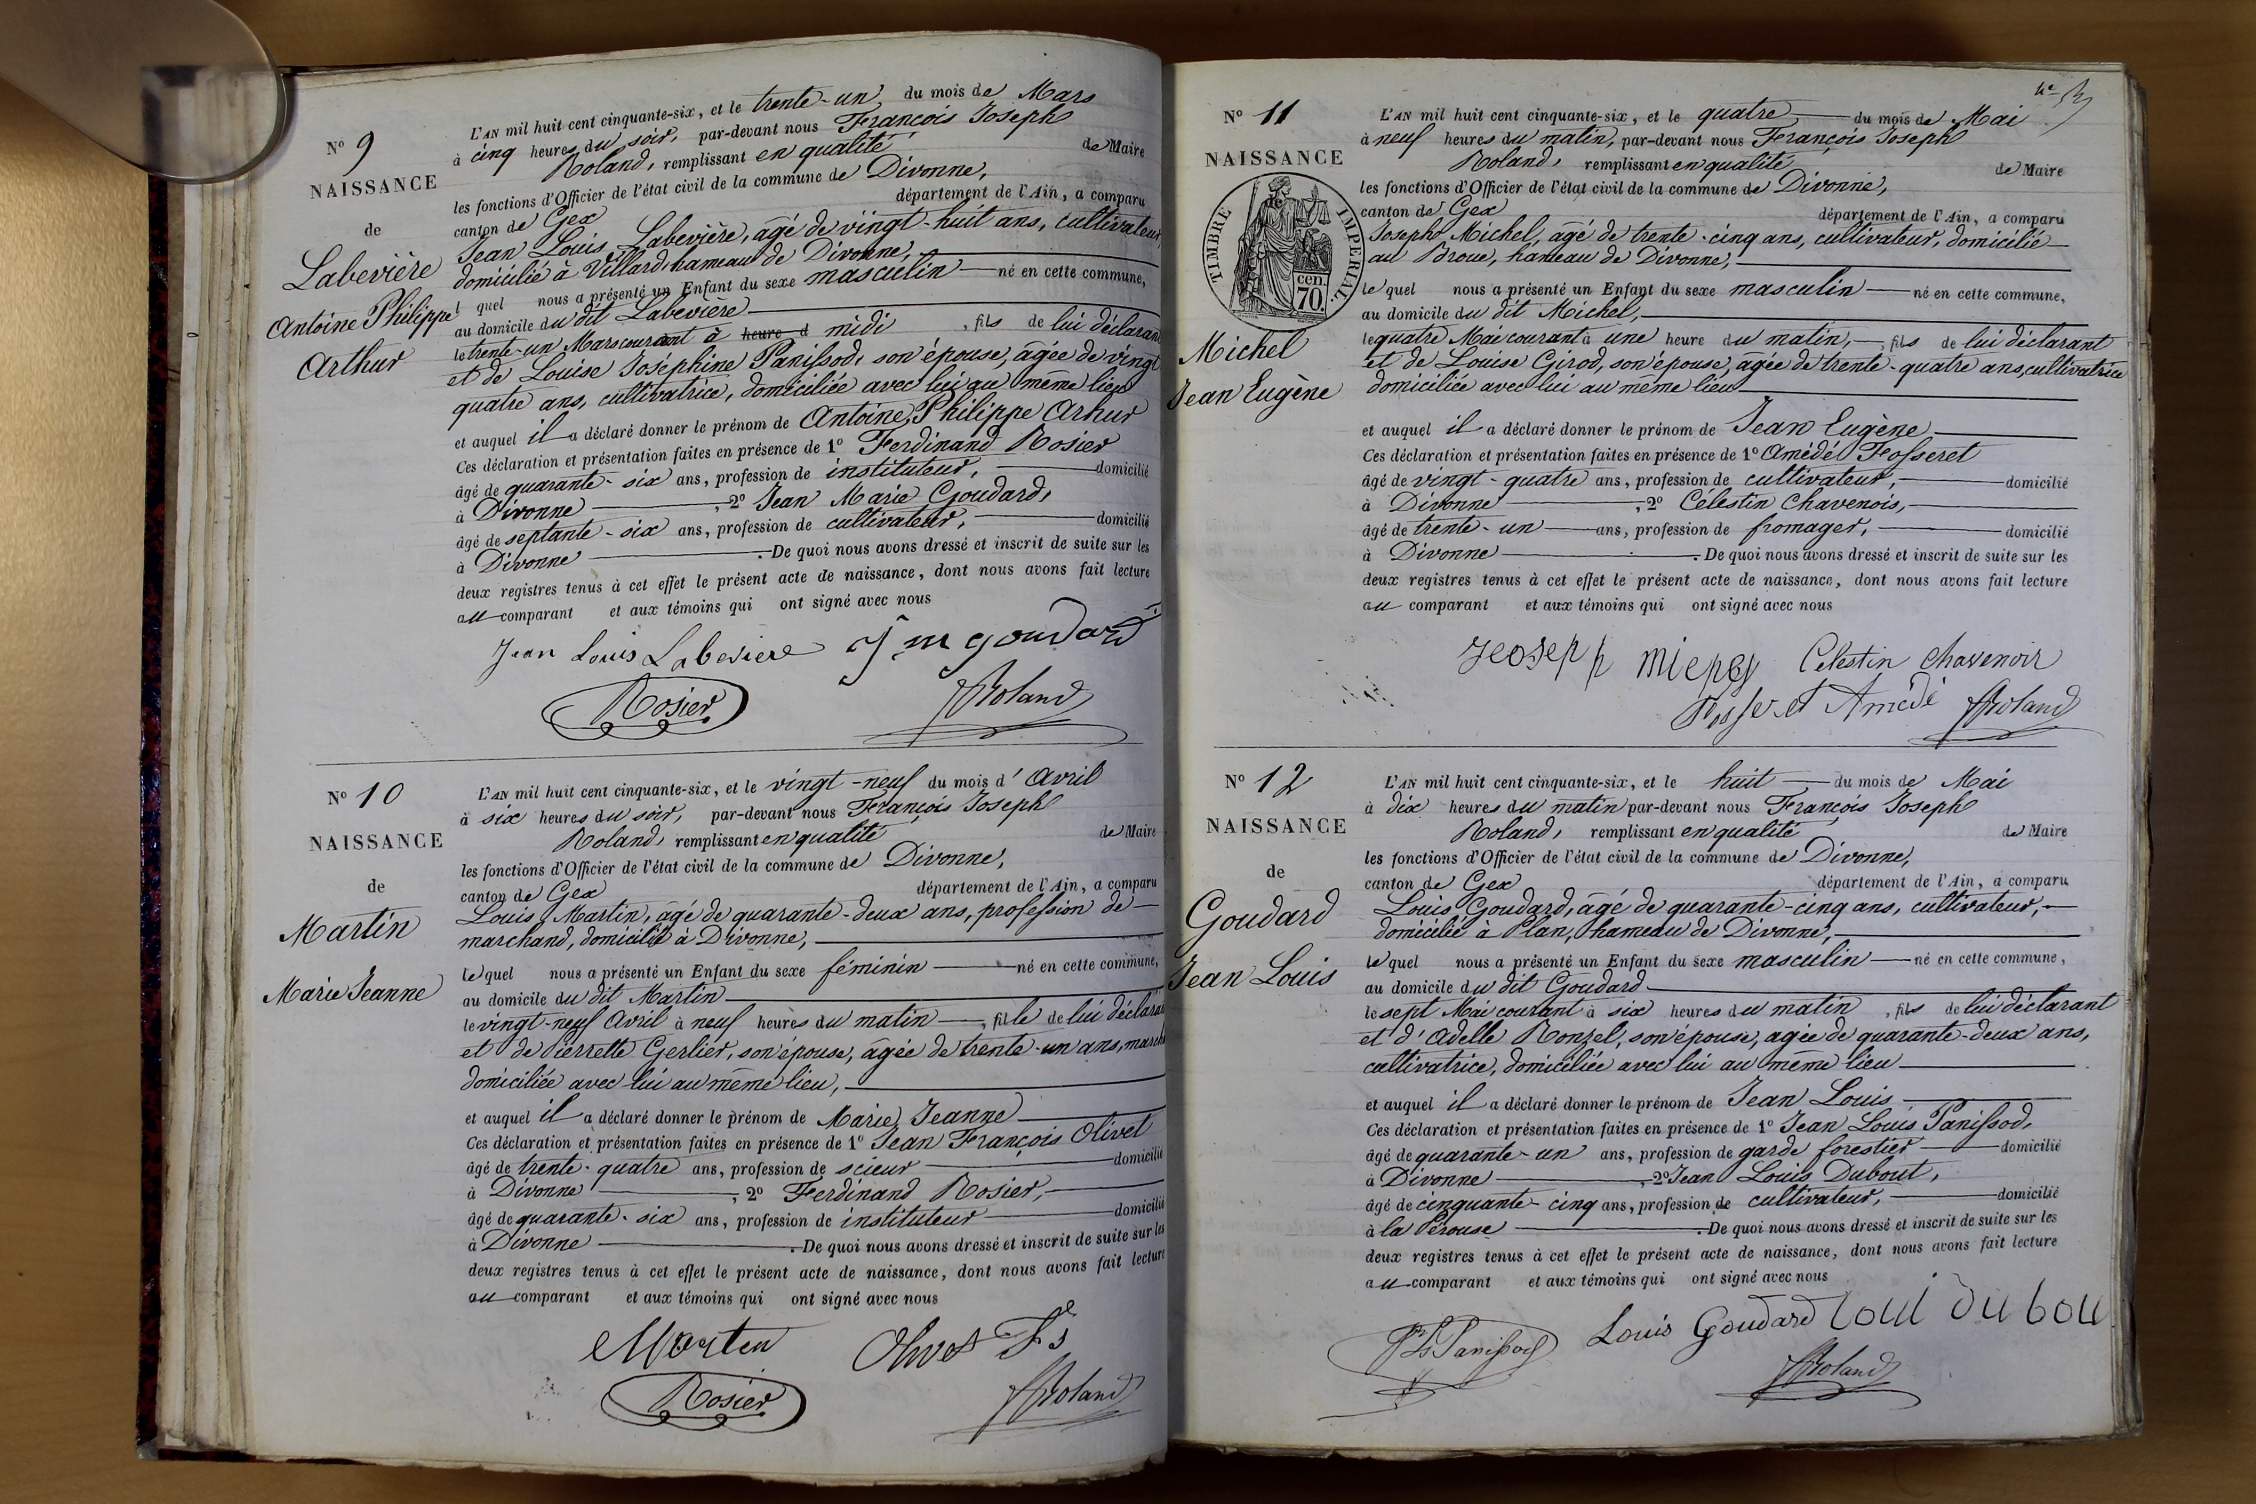 N° 9
NAISSANCE
de
Labevière
Antoine Philippe
Arthur
L'AN mil huit cent cinquante-six, et le trente-un du mois de Mars
à cinq heures du soir, par-devant nous François Joseph
Roland, remplissant en qualité de Maire
les fonctions d'Officier de l'état civil de la commune de Divonne,
canton de Gex département de l'Ain, a comparu
Jean Louis Labevière, âgé de vingt-huit ans, cultivateur
domicilié à Villard, hameau de Divonne,
l quel nous a présenté un Enfant du sexe masculin né en cette commune,
au domicile du dit Labevière
le trente-un Mars courant à heure d midi , fils de lui déclarant
et de Louise Joséphine Panissod, son épouse, âgée de vingt
quatre ans, cultivatrice, domiciliée avec lui au même lieu
et auquel il a déclaré donner le prénom de Antoine Philippe Arhur
Ces déclaration et présentation faites en présence de 1° Ferdinand Rosier
âgé de quarante-six ans, profession de instituteur, domicilié
à Divonne , 2° Jean Marie Goudard,
âgé de septante-six ans, profession de cultivateur, domicilié
à Divonne . De quoi nous avons dressé et inscrit de suite sur les
deux registres tenus à cet effet le présent acte de naissance, dont nous avons fait lecture
au comparant et aux témoins qui ont signé avec nous
Jean Louis Labeviere J m goudard
Rosier Roland
N° 10
NAISSANCE
de
Martin
Marie Jeanne
L'AN mil huit cent cinquante-six, et le vingt-neuf du mois d'Avril
à six heures du soir, par-devant nous François Joseph
Roland, remplissant en qualité de Maire
les fonctions d'Officier de l'état civil de la commune de Divonne,
canton de Gex département de l'Ain, a comparu
Louis Martin, âgé de quarante-deux ans, profession de
marchand, domicilié à Divonne,
lequel nous a présenté un Enfant du sexe féminin né en cette commune,
au domicile du dit Martin
le vingt-neuf Avril à neuf heures du matin , fille de lui déclarant
et de Pierrette Gerlier, son épouse, âgée de trente-un ans, march
domiciliée avec lui au même lieu,
et auquel il a déclaré donner le prénom de Marie Jeanne
Ces déclaration et présentation faites en présence de 1° Jean François Olivet
âgé de trente-quatre ans, profession de scieur domicilié
à Divonne , 2° Ferdinand Rosier,
âgé de quarante-six ans, profession de instituteur domicilié
à Divonne . De quoi nous avons dressé et inscrit de suite sur les
deux registres tenus à cet effet le présent acte de naissance, dont nous avons fait lecture
au comparant et aux témoins qui ont signé avec nous
Martin Olivet Fs
Rosier Roland
N° 11
NAISSANCE
TIMBRE IMPÉRIAL
cen.
70.
Michel
Jean Eugène
L'AN mil huit cent cinquante-six, et le quatre du mois de Mai
à neuf heures du matin, par-devant nous François Joseph
Roland, remplissant en qualité de Maire
les fonctions d'Officier de l'état civil de la commune de Divonne,
canton de Gex département de l'Ain, a comparu
Joseph Michel, âgé de trente-cinq ans, cultivateur, domicilié
au Broue, hameau de Divonne,
lequel nous a présenté un Enfant du sexe masculin né en cette commune,
au domicile du dit Michel,
le quatre Mai courant à une heure du matin, , fils de lui déclarant
et de Louise Girod, son épouse, âgée de trente-quatre ans, cultivatrice
domiciliée avec lui au même lieu
et auquel il a déclaré donner le prénom de Jean Eugène
Ces déclaration et présentation faites en présence de 1° Amédé Fosseret
âgé de vingt-quatre ans, profession de cultivateur, domicilié
à Divonne , 2° Célestin Chavenois,
âgé de trente-un ans, profession de fromager, domicilié
à Divonne . De quoi nous avons dressé et inscrit de suite sur les
deux registres tenus à cet effet le présent acte de naissance, dont nous avons fait lecture
au comparant et aux témoins qui ont signé avec nous
Celestin Chavenoir
Fosseret Amédé Roland
N° 12
NAISSANCE
de
Goudard
Jean Louis
L'AN mil huit cent cinquante-six, et le huit du mois de Mai
à dix heures du matin par-devant nous François Joseph
Roland, remplissant en qualité de Maire
les fonctions d'Officier de l'état civil de la commune de Divonne,
canton de Gex département de l'Ain, a comparu
Louis Goudard, âgé de quarante-cinq ans, cultivateur,
domicilié à Plan, hameau de Divonne,
lequel nous a présenté un Enfant du sexe masculin né en cette commune,
au domicile du dit Goudard
le sept Mai courant à six heures du matin , fils de lui déclarant
et d'Adelle Ronzel, son épouse, âgée de quarante-deux ans,
cultivatrice, domiciliée avec lui au même lieu
et auquel il a déclaré donner le prénom de Jean Louis
Ces déclaration et présentation faites en présence de 1° Jean Louis Panissod,
âgé de quarante-un ans, profession de garde forestier domicilié
à Divonne , 2° Jean Louis Dubout,
âgé de cinquante-cinq ans, profession de cultivateur, domicilié
à la Pérouse . De quoi nous avons dressé et inscrit de suite sur les
deux registres tenus à cet effet le présent acte de naissance, dont nous avons fait lecture
au comparant et aux témoins qui ont signé avec nous
Louis Goudard Loui Dubou
Panissod Roland